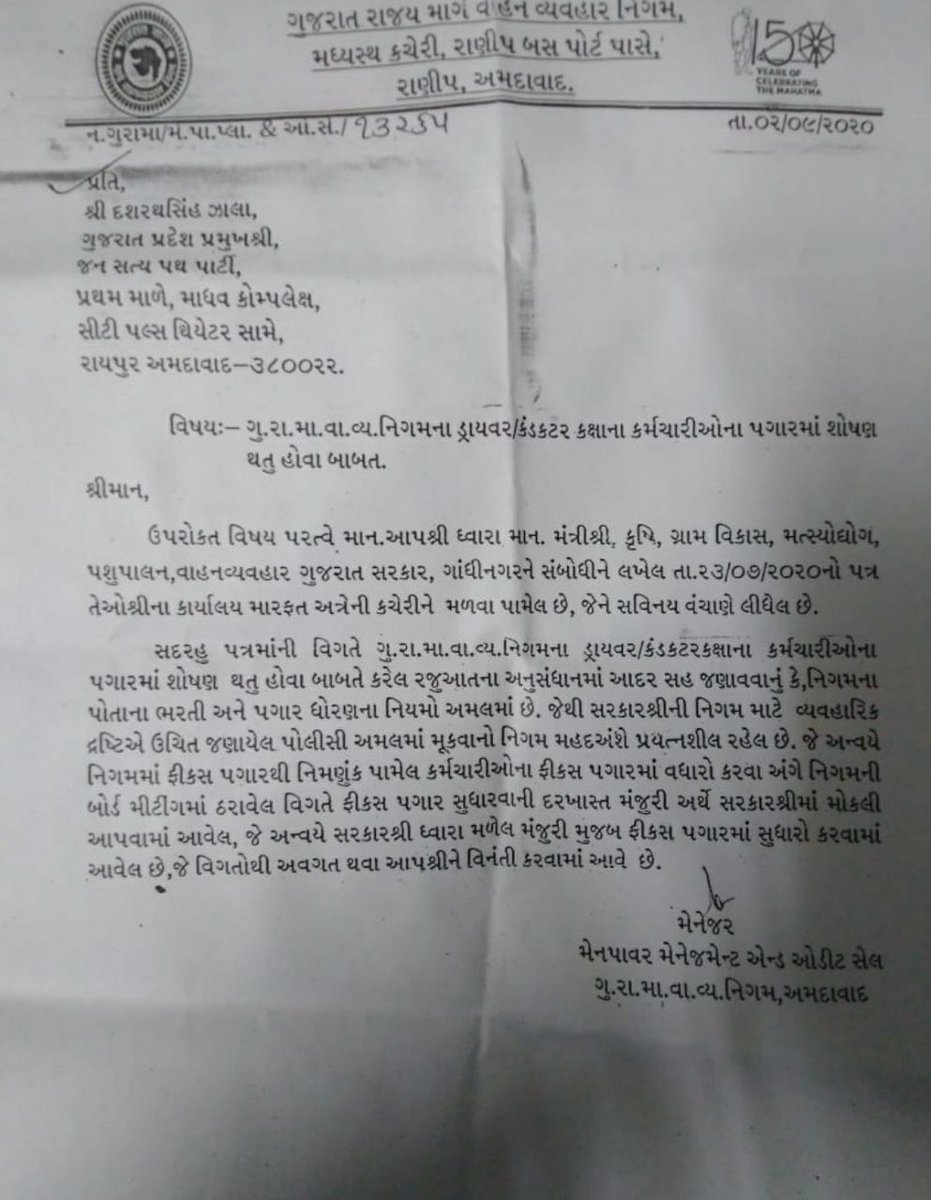 ગુજરાત રાજય માર્ગ વાહન વ્યવહાર નિગમ,
મધ્યસ્થ કચેરી, રાણીપ બસ પોર્ટ પાસે,
રાણીપ, અમદાવાદ.
150
YEARS OF
CELEBRATING
THE MAHATMA
ન.ગુરામા/મે.પા.પ્લા. & આ.સે./૧૩૨૬૫
તા.૦૨/૦૯/૨૦૨૦
પ્રતિ,
શ્રી દશરથસિંહ ઝાલા,
ગુજરાત પ્રદેશ પ્રમુખશ્રી,
જન સત્ય પથ પાર્ટી,
પ્રથમ માળે, માધવ કોમ્પલેક્ષ,
સીટી પલ્સ થિયેટર સામે,
રાયપુર અમદાવાદ–૩૮૦૦૨૨.
વિષયઃ– ગુ.રા.મા.વા.વ્ય.નિગમના ડ્રાયવર/કંડકટર કક્ષાના કર્મચારીઓના પગારમાં શોષણ
થતુ હોવા બાબત.
શ્રીમાન,
ઉપરોકત વિષય પરત્વે માન.આપશ્રી ધ્વારા માન. મંત્રીશ્રી, કૃષિ, ગ્રામ વિકાસ, મત્સ્યોદ્યોગ,
પશુપાલન,વાહનવ્યવહાર ગુજરાત સરકાર, ગાંધીનગરને સંબોધીને લખેલ તા.૨૩/૦૭/૨૦૨૦નો પત્ર
તેઓશ્રીના કાર્યાલય મારફત અત્રેની કચેરીને મળવા પામેલ છે, જેને સવિનય વંચાણે લીધેલ છે.
સદરહુ પત્રમાંની વિગતે ગુ.રા.મા.વા.વ્ય.નિગમના ડ્રાયવર/કંડકટરકક્ષાના કર્મચારીઓના
પગારમાં શોષણ થતુ હોવા બાબતે કરેલ રજુઆતના અનુસંધાનમાં આદર સહ જણાવવાનું કે,નિગમના
પોતાના ભરતી અને પગાર ધોરણના નિયમો અમલમાં છે. જેથી સરકારશ્રીની નિગમ માટે વ્યવહારિક
દ્રષ્ટિએ ઉચિત જણાયેલ પોલીસી અમલમાં મૂકવાનો નિગમ મહદઅંશે પ્રયત્નશીલ રહેલ છે. જે અન્વયે
નિગમમાં ફીકસ પગારથી નિમણુંક પામેલ કર્મચારીઓના ફીકસ પગારમાં વધારો કરવા અંગે નિગમની
બોર્ડ મીટીંગમાં ઠરાવેલ વિગતે ફીકસ પગાર સુધારવાની દરખાસ્ત મંજુરી અર્થે સરકારશ્રીમાં મોકલી
આપવામાં આવેલ, જે અન્વયે સરકારશ્રી ધ્વારા મળેલ મંજુરી મુજબ ફીકસ પગારમાં સુધારો કરવામાં
આવેલ છે,જે વિગતોથી અવગત થવા આપશ્રીને વિનંતી કરવામાં આવે છે.
મેનેજર
મેનપાવર મેનેજમેન્ટ એન્ડ ઓડીટ સેલ
ગુ.રા.મા.વા.વ્ય.નિગમ,અમદાવાદ